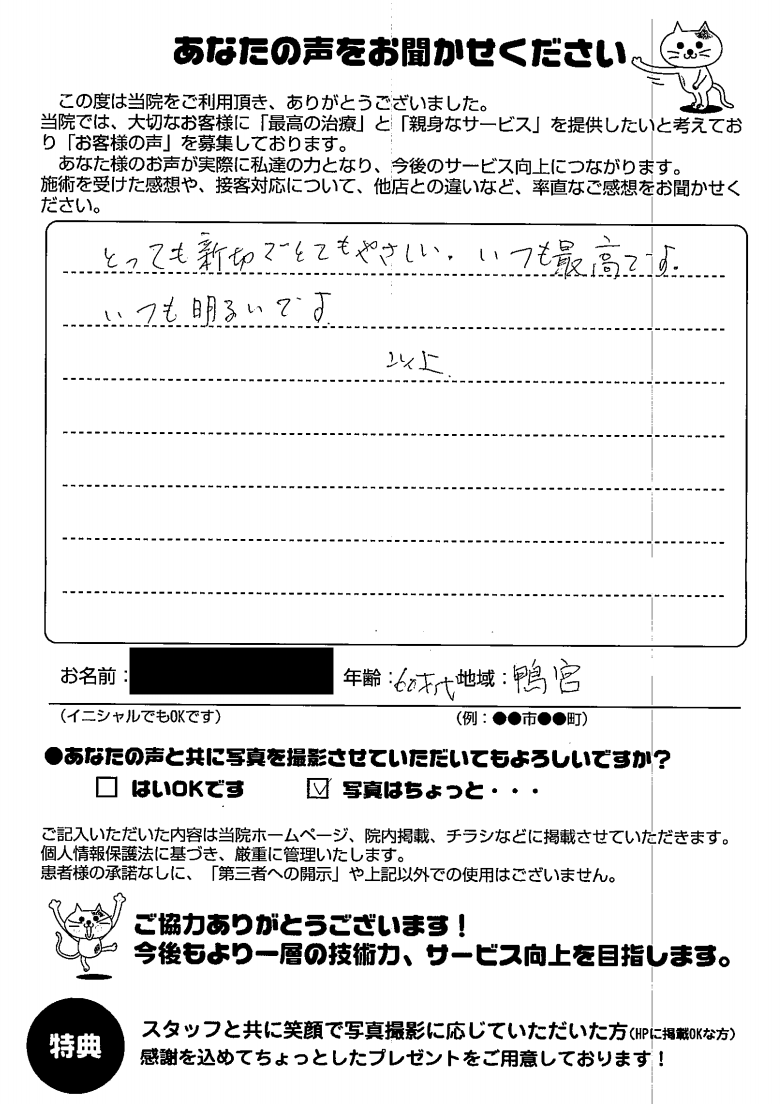 あなたの声をお聞かせください
この度は当院をご利用頂き、ありがとうございました。
当院では、大切なお客様に「最高の治療」と「親身なサービス」を提供したいと考えてお
り「お客様の声」を募集しております。
あなた様のお声が実際に私達の力となり、今後のサービス向上につながります。
施術を受けた感想や、接客対応について、他店との違いなど、率直なご感想をお聞かせく
ださい。
とっても新切でとてもやさしい。いつも最高です。
いつも明るいです
以上.
お名前: 年齢:60才代 地域:鴨宮
(イニシャルでもOKです) (例:●●市●●町)
●あなたの声と共に写真を撮影させていただいてもよろしいですか?
□ はいOKです ☑ 写真はちょっと・・・
ご記入いただいた内容は当院ホームページ、院内掲載、チラシなどに掲載させていただきます。
個人情報保護法に基づき、厳重に管理いたします。
患者様の承諾なしに、「第三者への開示」や上記以外での使用はございません。
ご協力ありがとうございます!
今後もより一層の技術力、サービス向上を目指します。
特典
スタッフと共に笑顔で写真撮影に応じていただいた方(HPに掲載OKな方)
感謝を込めてちょっとしたプレゼントをご用意しております!